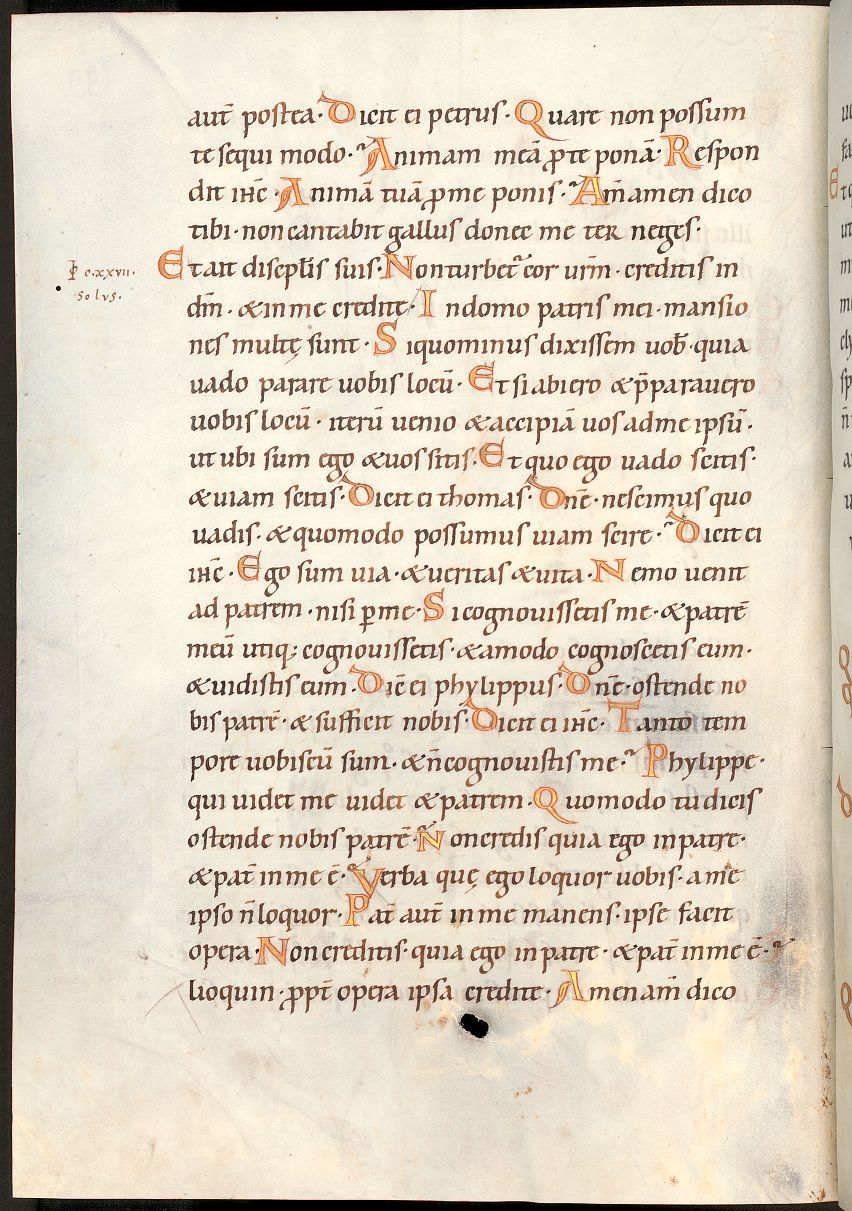 aut̄ postea· Dicit ei petrus· Quare non possum
te sequi modo· Animam meā p̱te ponā· Respon
dit ihc̄· Animā tuā p̱me ponis· Am̄ amen dico
tibi· non cantabit gallus donec me ter neges·
IO c.xxvii.
solus.
Et ait discipl̄is suis· Non turbet᷑ cor urm̄· creditis in
dm̄· & in me credite· In domo patris mei· mansio
nes multę sunt· Si quo minus dixissem uob̄· quia
uado parare uobis locū· Et si abiero & p̄paravero
uobis locū· iterū uenio & accipiā uos ad me ipsū·
ut ubi sum ego & uos sitis· Et quo ego uado scitis·
& uiam scitis· Dicit ei thomas· Dnē· nescimus quo
uadis· & quomodo possumus uiam scire· Dicit ei
ihc̄· Ego sum uia· & ueritas & uita· Nemo uenit
ad patrem· nisi ꝑ me· Si cognouissetis me· & patrē
meū utiq; cognouissetis· & amodo cognoscetis eum·
& uidistis eum· Dic̄ ei phylippus· Dnē· ostende no
bis patrē· & sufficit nobis· Dicit ei ihc̄· Tanto tem
pore uobiscū sum· & n̄ cognouistis me· Phylippe·
qui uidet me uidet & patrem· Quomodo tu dicis
ostende nobis patrē· Non credis quia ego in patre·
& pat̄ in me ē· Verba quę ego loquor uobis· a me
ipso n̄ loquor· Pat̄ aut̄ in me manens· ipse facit
opera· Non creditis· quia ego in patre· & pat̄ in me ē·
lioquin· ꝓpt̄ opera ipsa credite· Amen am̄ dico